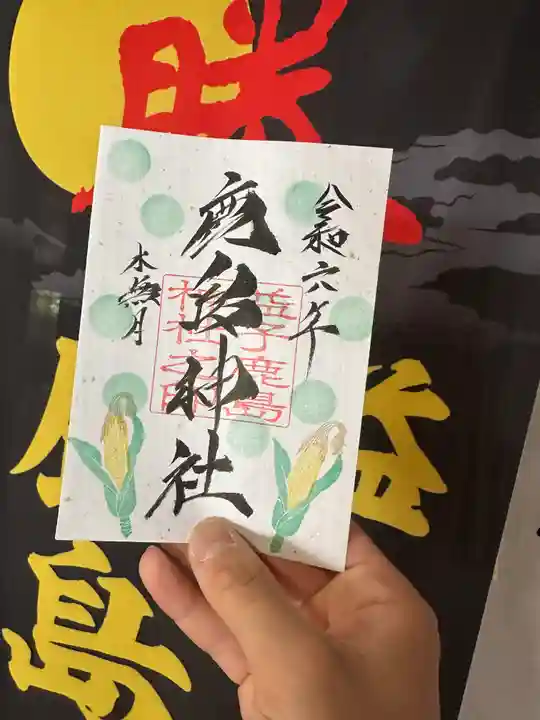 令和六年
鹿島神社
水無月
益子鹿島
神社之印
勝
益
島